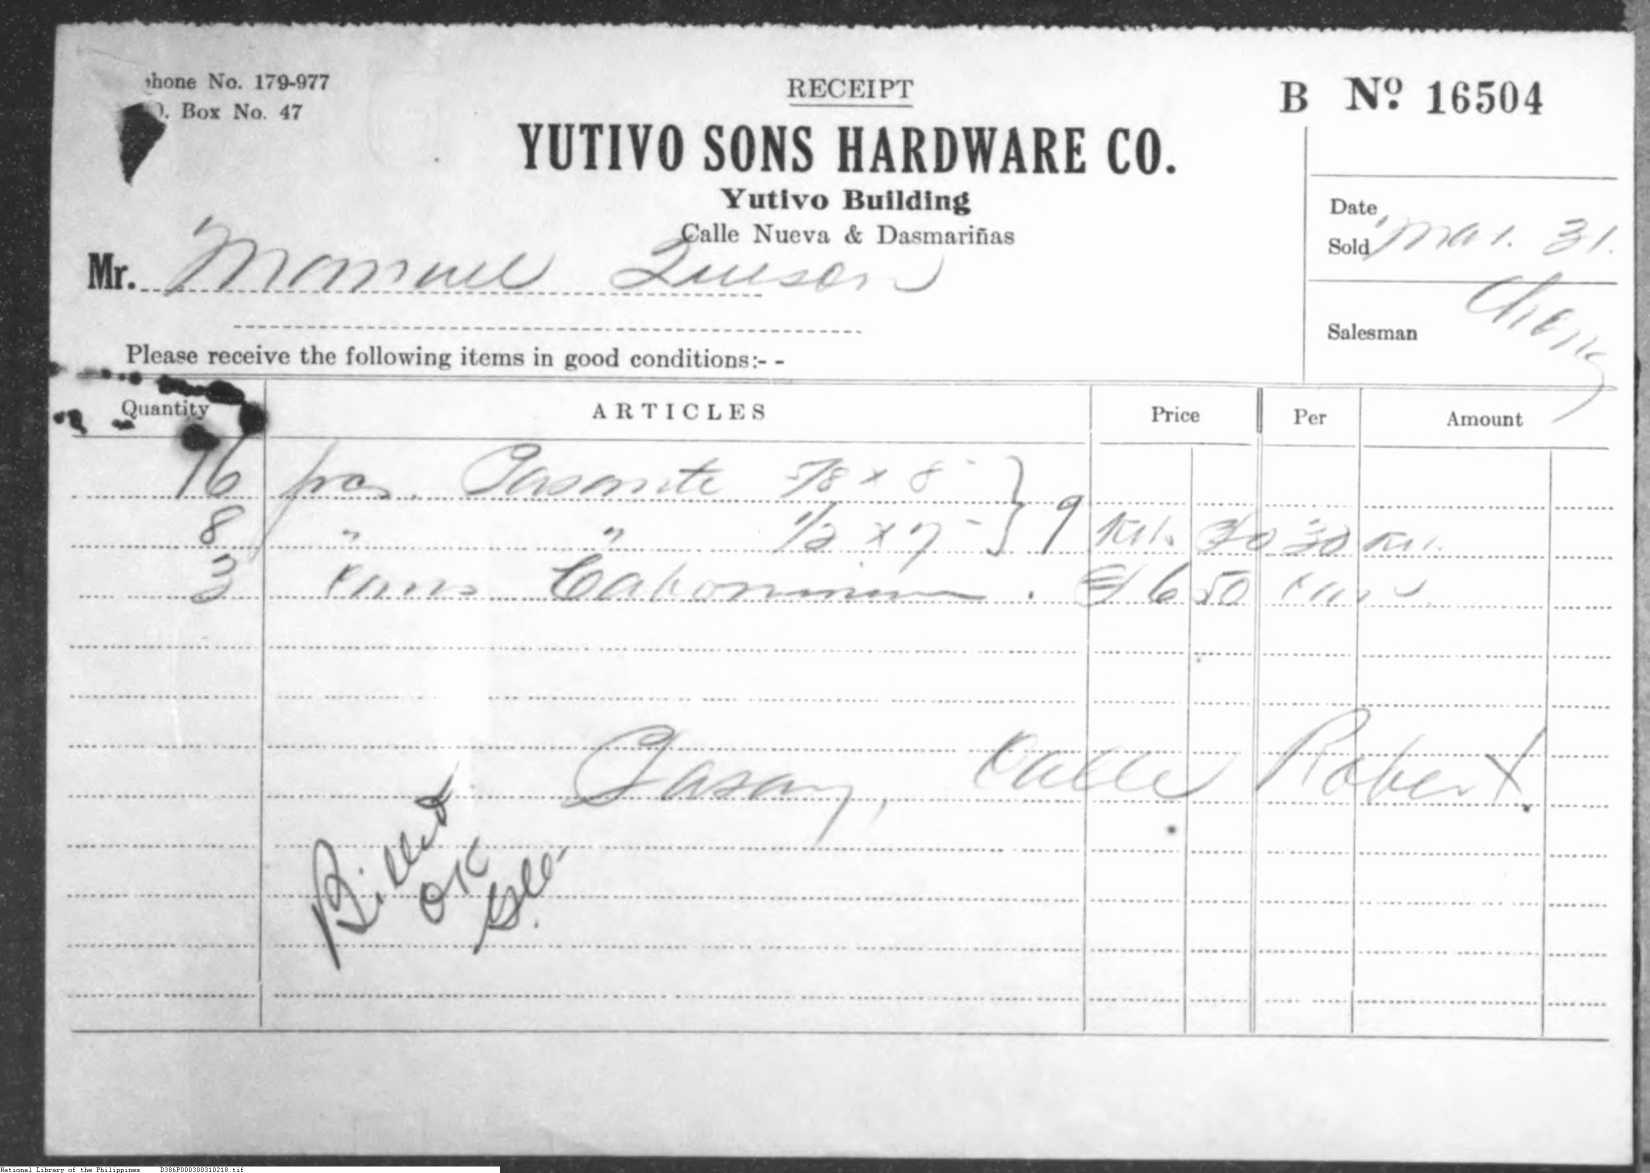 phone No. 179-977
O. Box No. 47
RECEIPT
B Nº 16504
YUTIVO SONS HARDWARE CO.
Yutivo Building
Calle Nueva & Dasmariñas
Date Sold Mar. 31.
Mr. Manuel Queson
Salesman
Please receive the following items in good conditions:- -
Quantity ARTICLES Price Per Amount
16 pcs. Pasante 5/8 x 8
8 " " 1/2 x 7 } 9 Kil. 30 Kil.
3 Cabonimum . 6 50
Pasay, Calle Robert.
Billed
OK
National Library of the Philippines D386P000300310218.tif